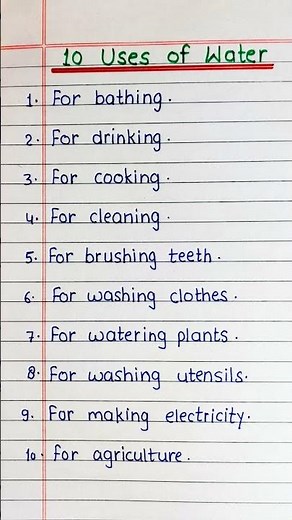 10 Uses of Water
1. For bathing.
2. For drinking.
3. For cooking.
4. For cleaning.
5. For brushing teeth.
6. For washing clothes.
7. For watering plants.
8. For washing utensils.
9. For making electricity.
10. for agriculture.